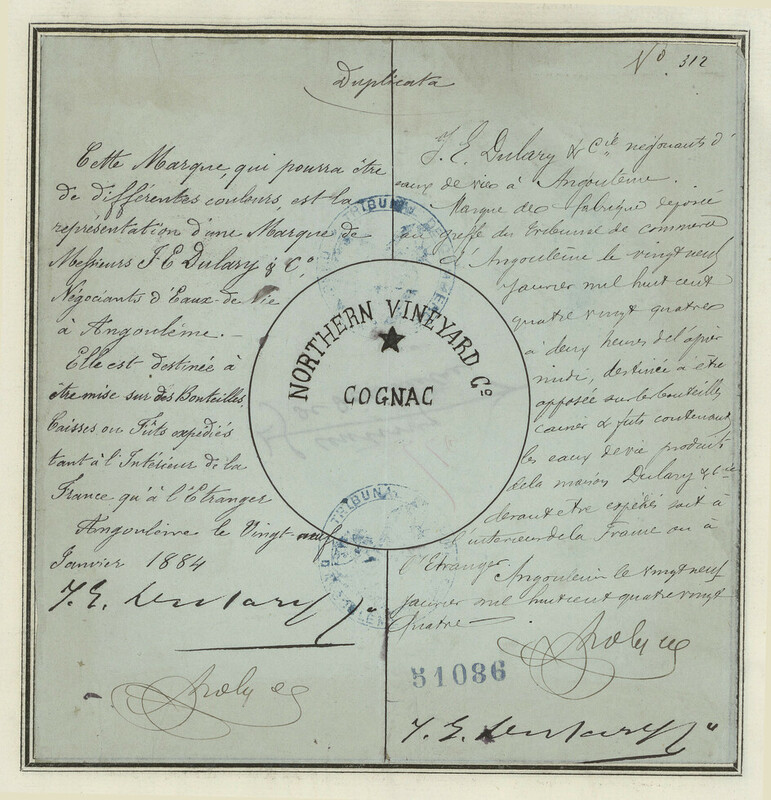 Duplicata
No 312
Cette Marque, qui pourra être
de différentes couleurs, est la
représentation d'une Marque de
Messieurs J E Dulary & Co.
Négociants d'Eaux-de-Vie
à Angoulême.-
Elle est destinée à
être mise sur des Bouteilles,
Caisses ou Fûts expédiés
tant à l'Intérieur de la
France qu'à l'Etranger
Angoulême le Vingt-neuf
Janvier 1884
J. E. Dulary & Co
NORTHERN VINEYARD Co
COGNAC
J. E. Dulary & Cie négociants d'
eaux de vie à Angoulême.
Marque de fabrique déposée
au greffe du Tribunal de commerce
d'Angoulême le vingt neuf
janvier mil huit cent
quatre vingt quatre
à deux heures de l'après
midi, destinée à être
apposée sur les bouteilles
caisses & futs contenant
les eaux de vie produits
de la maison Dulary & Cie
devant être expédiés soit à
l'intérieur de la France ou à
l'Etranger. Angoulême le vingt neuf
janvier mil huit cent quatre vingt
quatre
51086
J. E. Dulary & Co
TRIBUNAL
TRIBUNAL